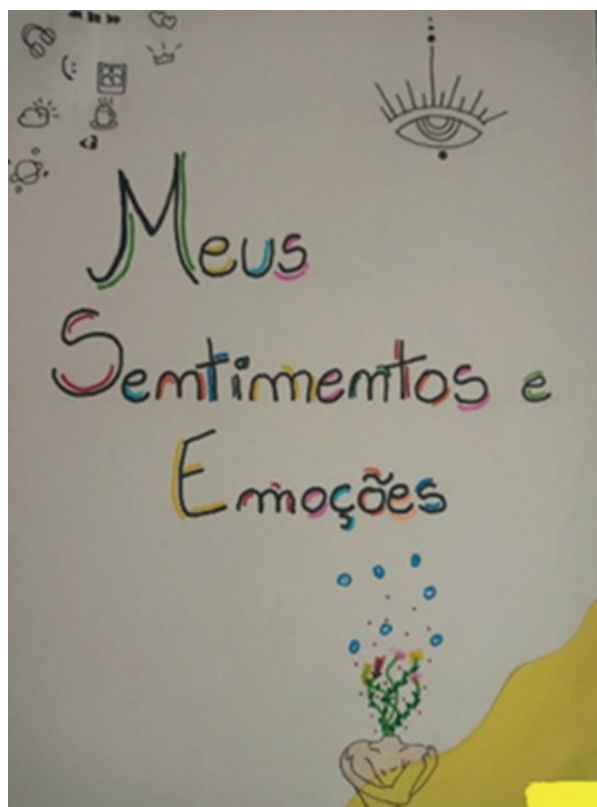 Meus
Sentimentos e
Emoções